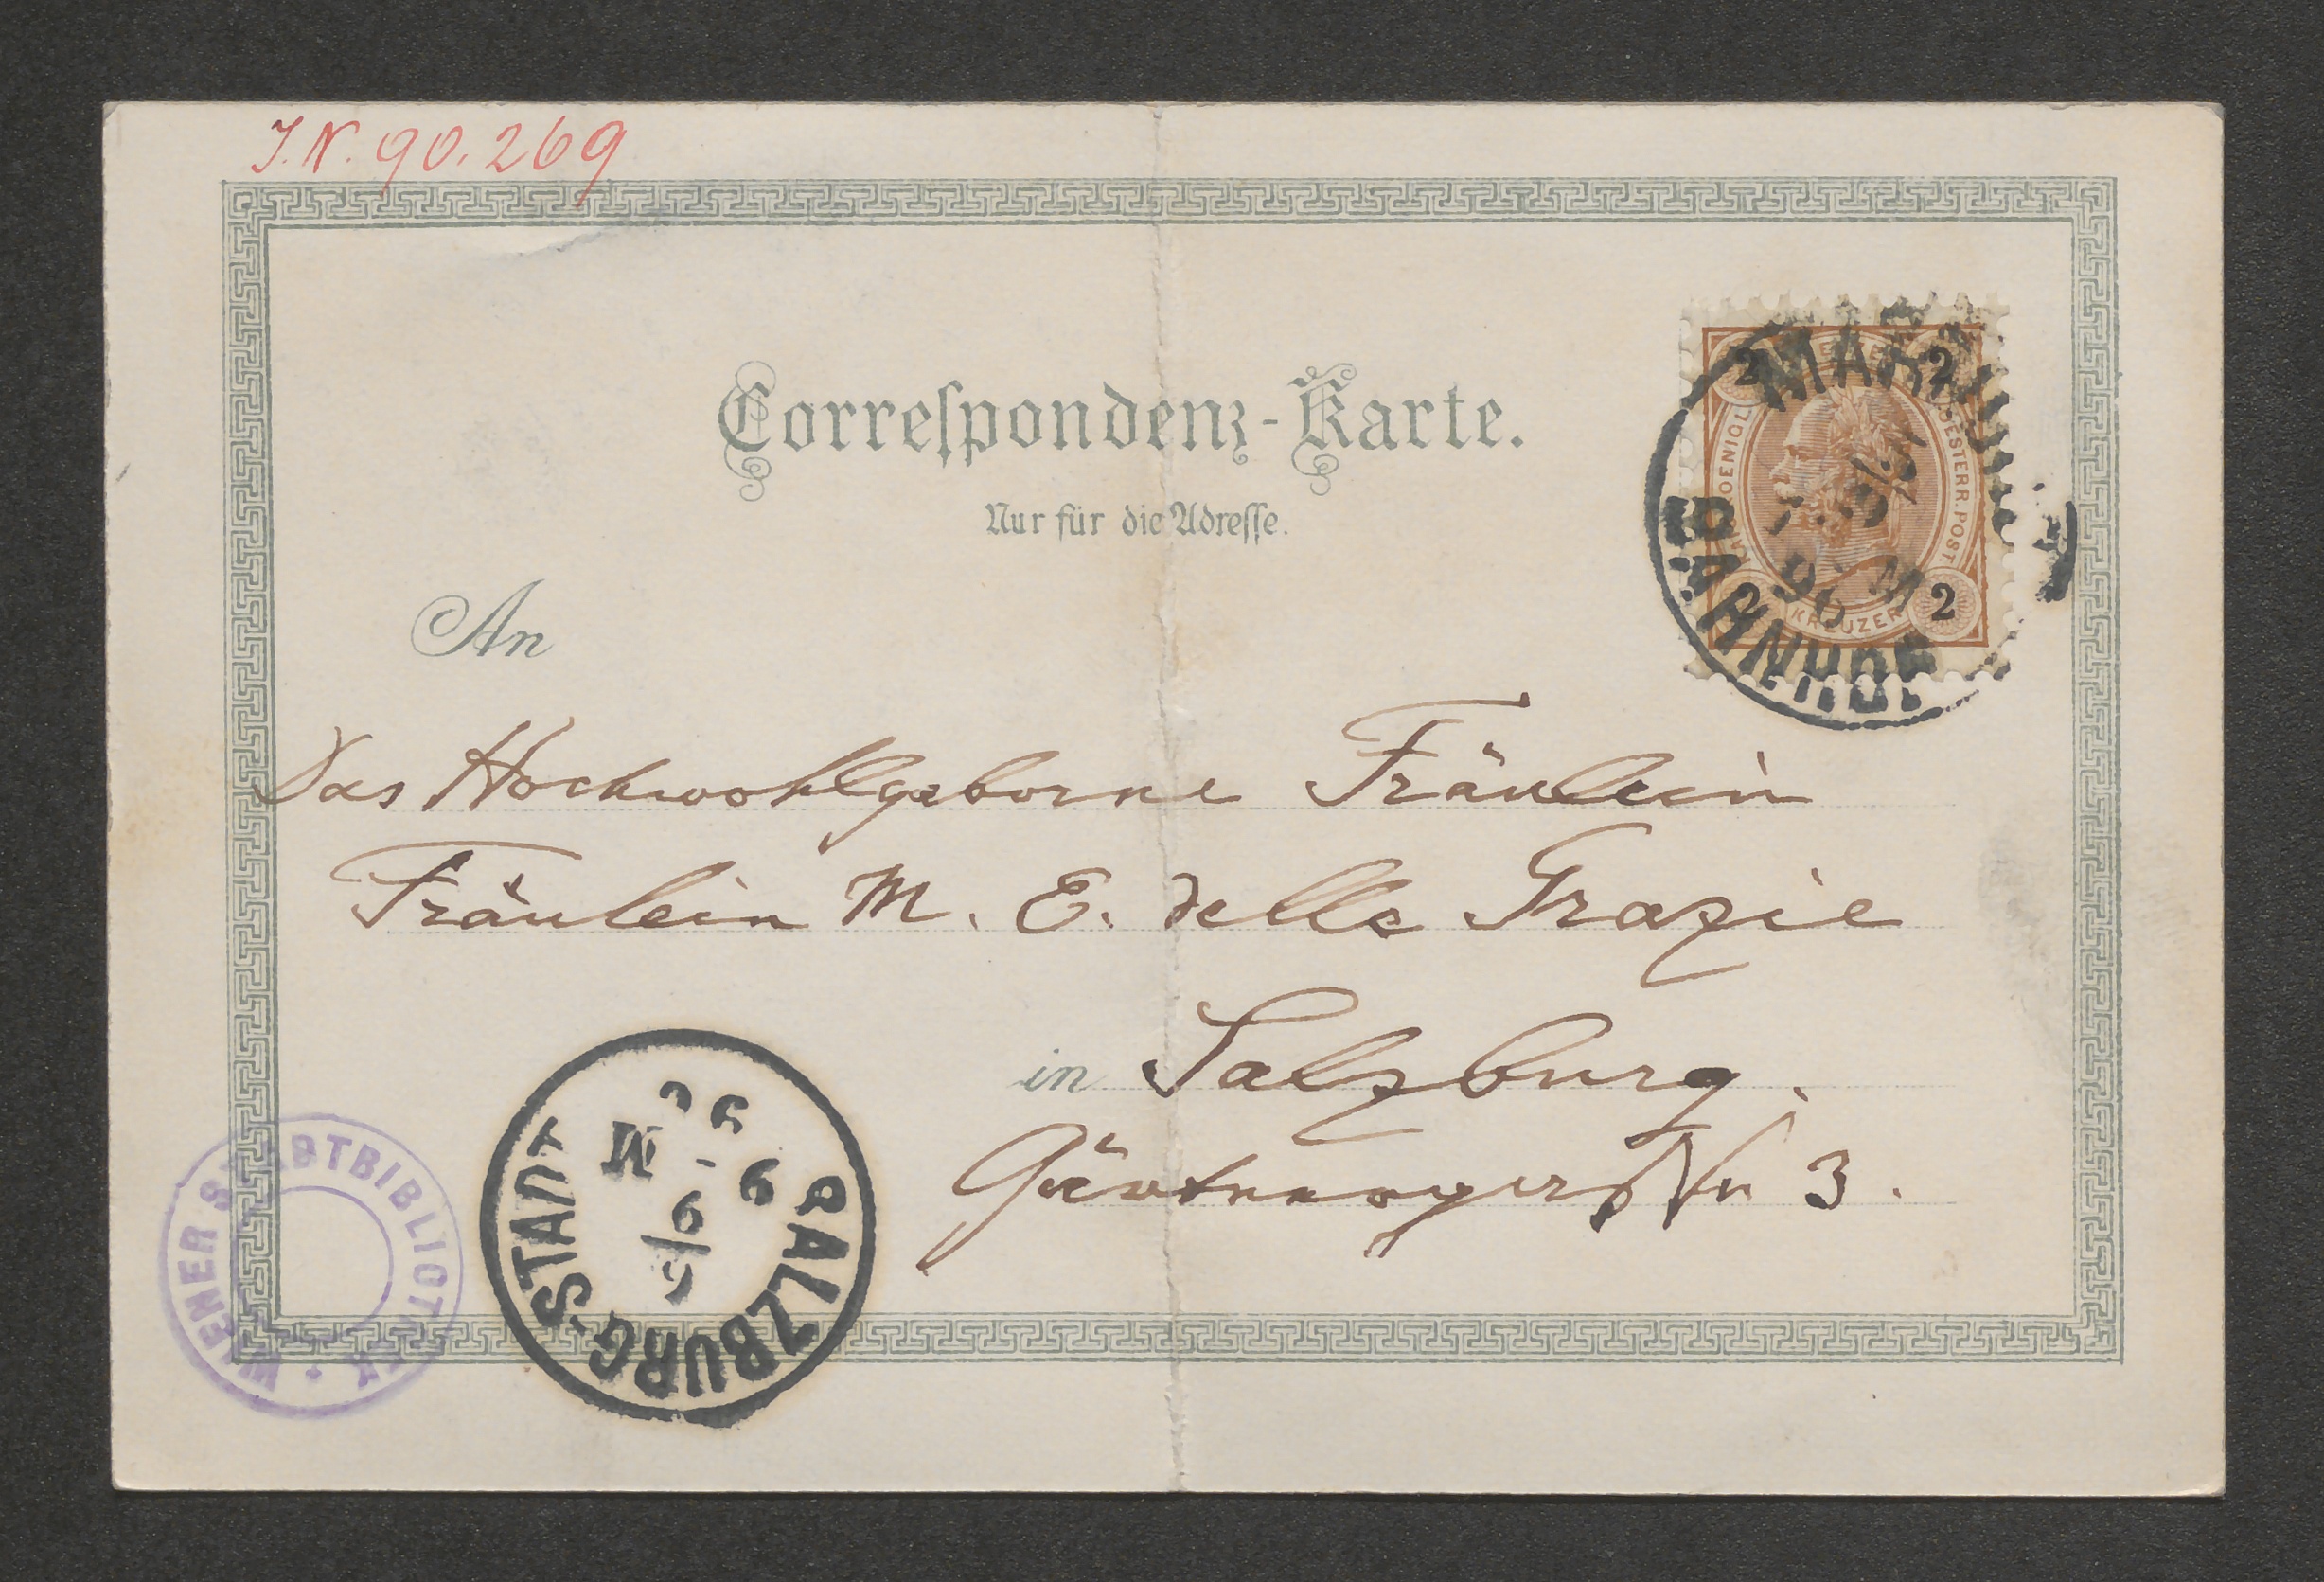 J. N. 90.269
Correspondenz-Karte.
Nur für die Adresse.
2 2
KOENIGL. OESTERR. POST.
2 KREUZER 2
BAHNHOF
96
An
Das Hochwohlgeborne Fräulein
Fräulein M. E. delle Grazie
in Salzburg.
Nr 3.
WIENER STADTBIBLIOTHEK
SALZBURG-STADT